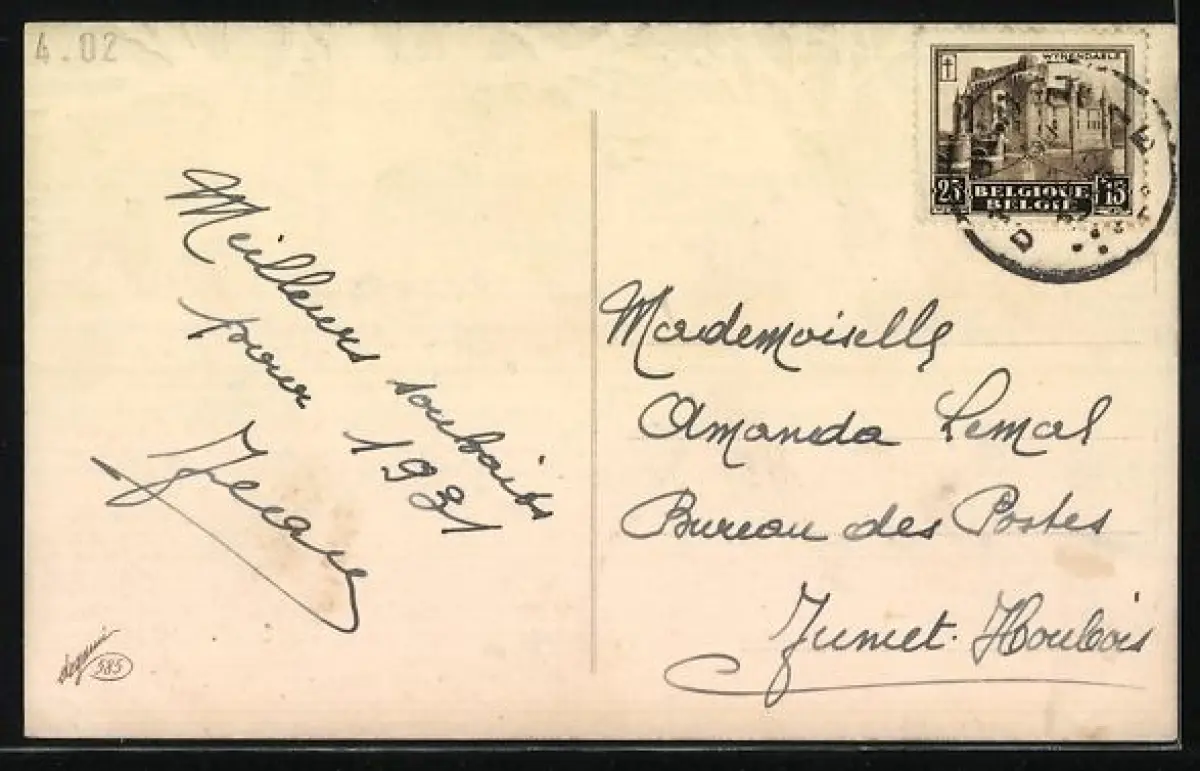 4.02
WYNENDAELE
25
BELGIQUE
BELGIË
+15
Meilleurs souhaits
pour 1931
Jean
Mademoiselle
Amanda Lemal
Bureau des Postes
Jumet-Houbois
585